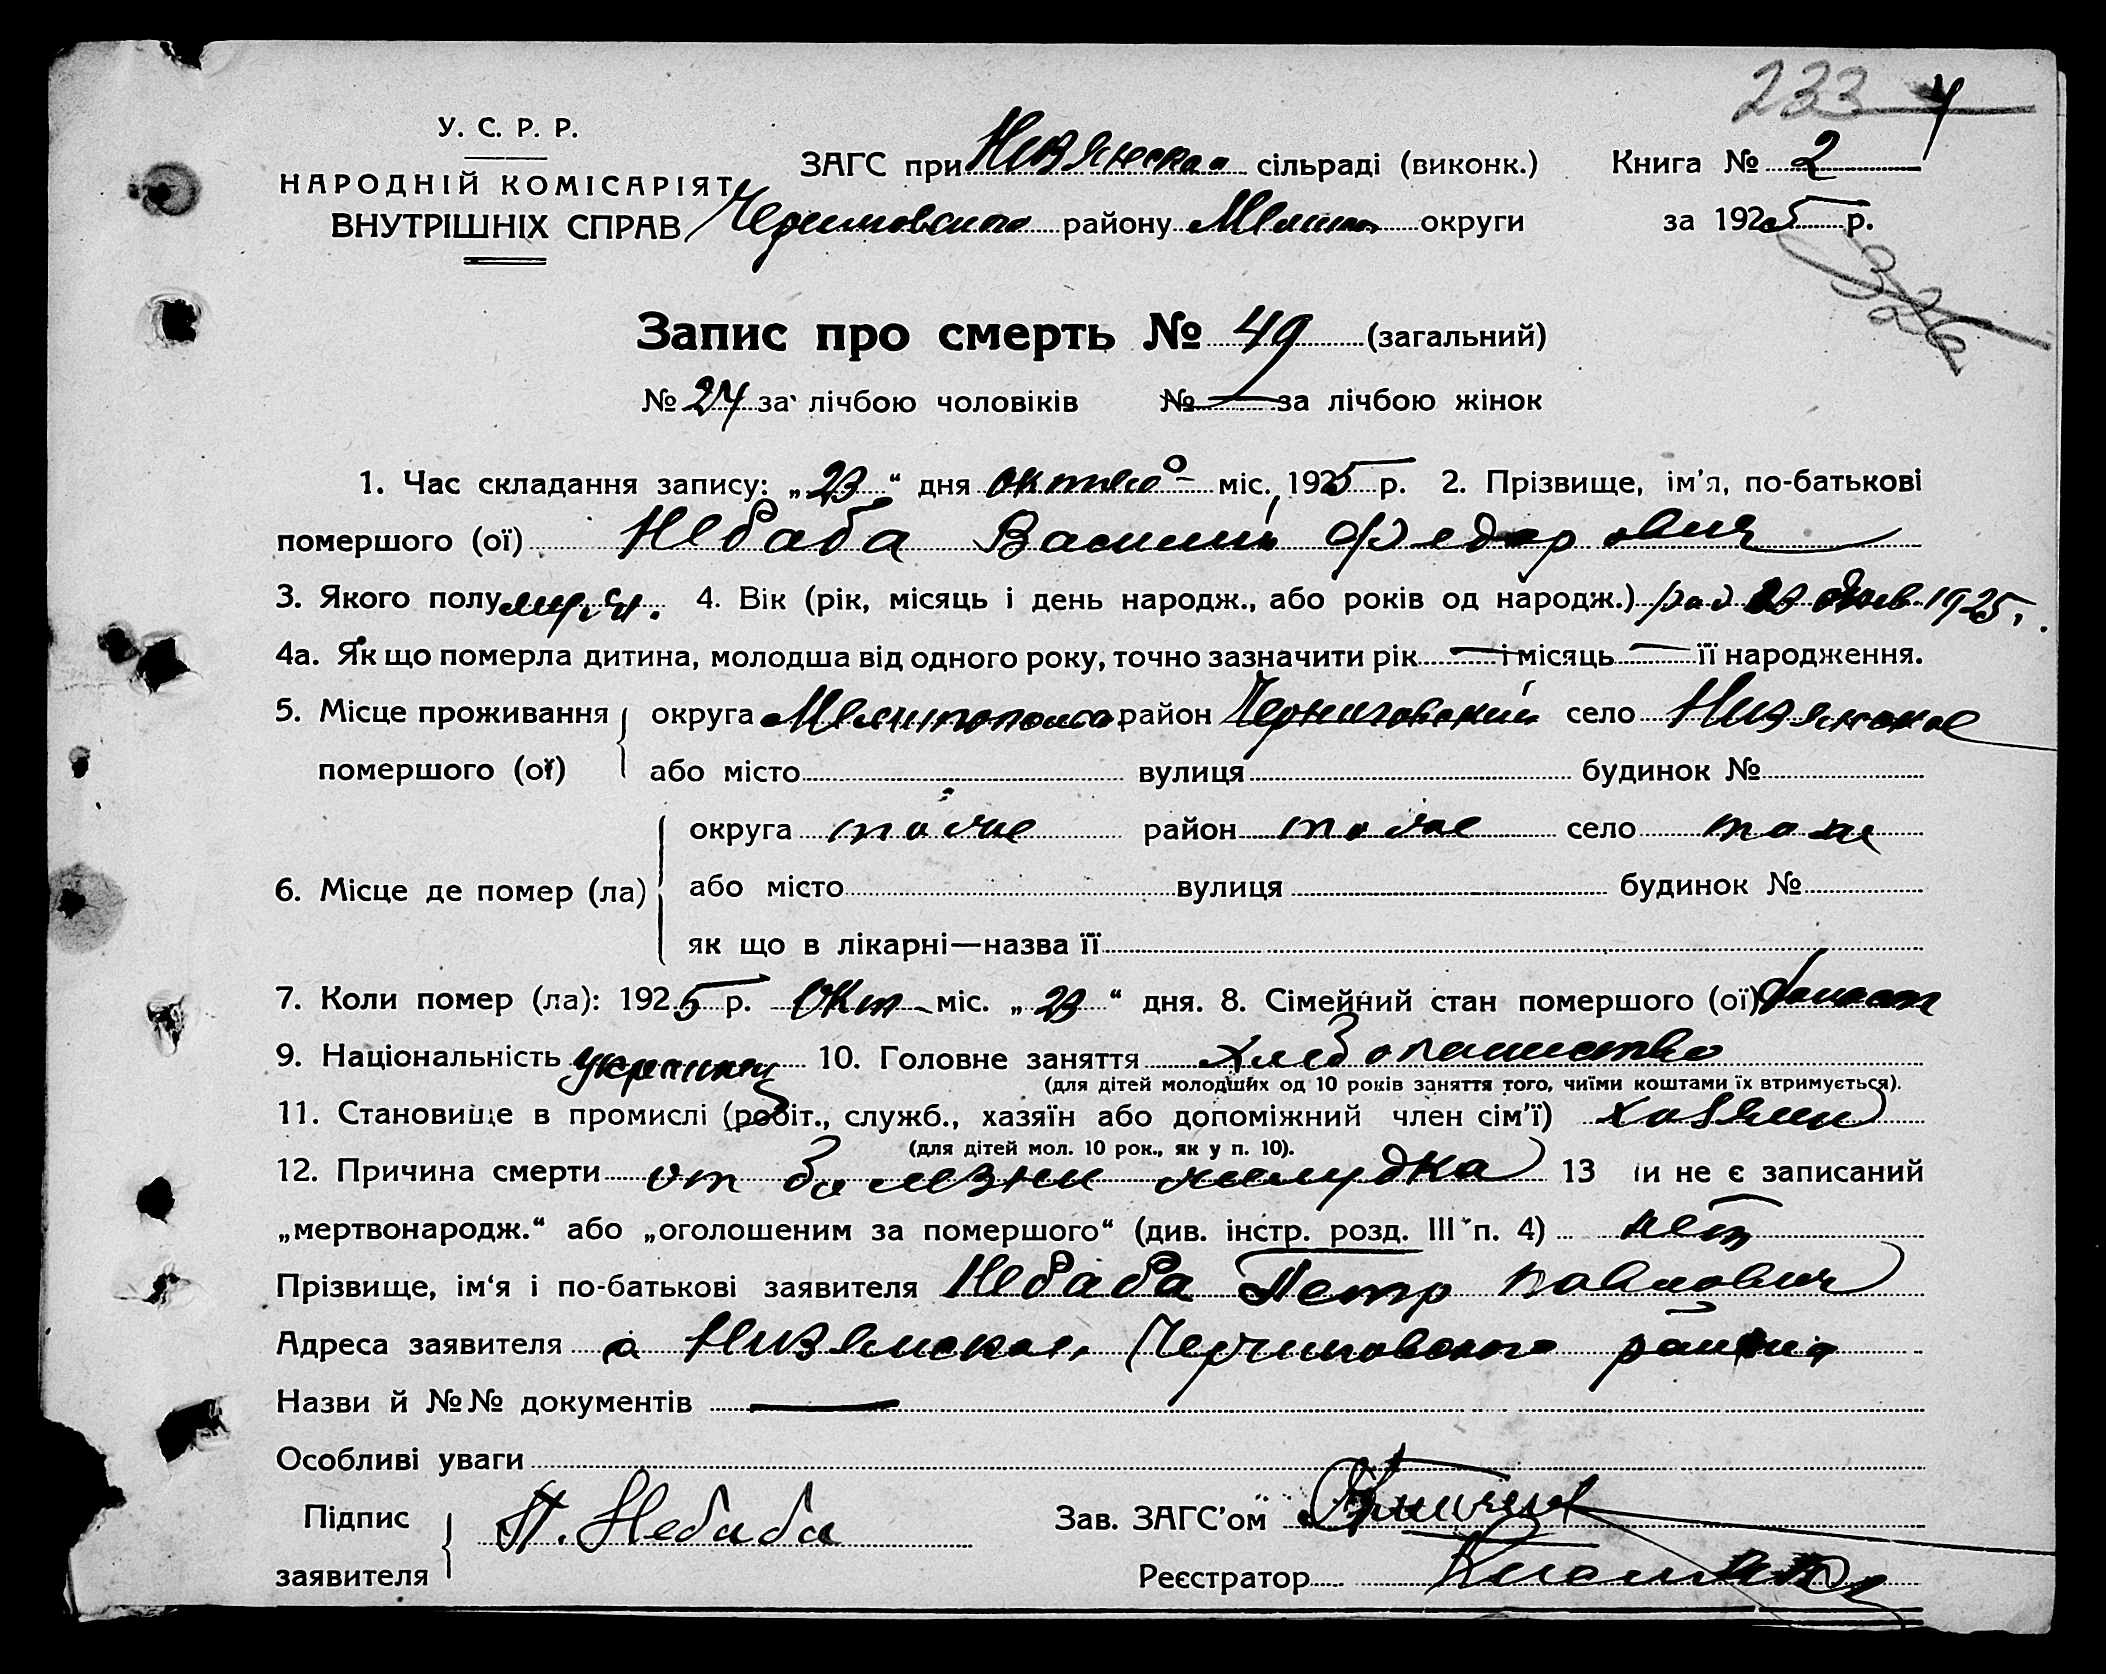 233
У. С. Р. Р.
НАРОДНІЙ КОМІСАРІЯТ
ВНУТРІШНІХ СПРАВ
ЗАГС при Низянская сільраді (виконк.) Книга № 2
Черниговского району Мелитоп округи за 1925 р.
326
Запис про смерть № 49 (загальний)
№ 24 за лічбою чоловіків № — за лічбою жінок
1. Час складання запису: „23“ дня октяб міс. 1925 р. 2. Прізвище, ім'я, по-батькові
помершого (ої) Небаба Василий Федорович
3. Якого полу муж. 4. Вік (рік, місяць і день народж., або років од народж.) 1925 г.
4а. Як що померла дитина, молодша від одного року, точно зазначити рік — і місяць — її народження.
5. Місце проживання округа Мелитопольск район Черниговский село Низянское
помершого (ої) або місто вулиця будинок №
округа тоже район тоже село тоже
6. Місце де помер (ла) або місто вулиця будинок №
як що в лікарні—назва її
7. Коли помер (ла): 1925 р. Окт міс. „23“ дня. 8. Сімейний стан помершого (ої) холост
9. Національність украинец 10. Головне заняття хлебопашество
(для дітей молодших од 10 років заняття того, чиїми коштами їх втримується).
11. Становище в промислі (робіт., служб., хазяїн або допоміжний член сім'ї) хозяин
(для дітей мол. 10 рок., як у п. 10).
12. Причина смерти от болезни желудка 13 и не є записаний
„мертвонародж.“ або „оголошеним за помершого“ (див. інстр. розд. III п. 4) нет
Прізвище, ім'я і по-батькові заявителя Небаба Петр Павлович
Адреса заявителя с Низянское, Черниговского района
Назви й №№ документів —
Особливі уваги
Підпис П. Небаба Зав. ЗАГС'ом
заявителя Реєстратор